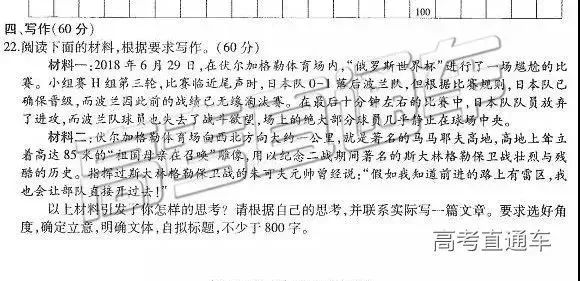 100
四、写作(60分)
22.阅读下面的材料,根据要求写作。(60分)
材料一:2018年6月29日,在伏尔加格勒体育场内,“俄罗斯世界杯”进行了一场尴尬的比
赛。小组赛H组第三轮,比赛临近尾声时,日本队0-1落后波兰队,但根据比赛规则,日本队已
确保晋级,而波兰因此前的战绩已无缘淘汰赛。在最后十分钟左右的比赛中,日本队队员放弃
了进攻,而波兰队球员也失去了战斗欲望,场上的绝大部分球员几乎静止在球场中央。
材料二:伏尔加格勒体育场向西北方向大约一公里,就是著名的马马耶夫高地,高地上耸立
着高达85米的“祖国母亲在召唤”雕像,用以纪念二战期间著名的斯大林格勒保卫战壮烈与残
酷的历史。指挥过斯大林格勒保卫战的朱可夫元帅曾经说:“假如我知道前进的路上有雷区,我
也会让部队直接开过去!”
以上材料引发了你怎样的思考?请根据自己的思考,并联系实际写一篇文章。要求选好角
度,确定立意,明确文体,自拟标题,不少于800字。
高考直通车
高考直通车